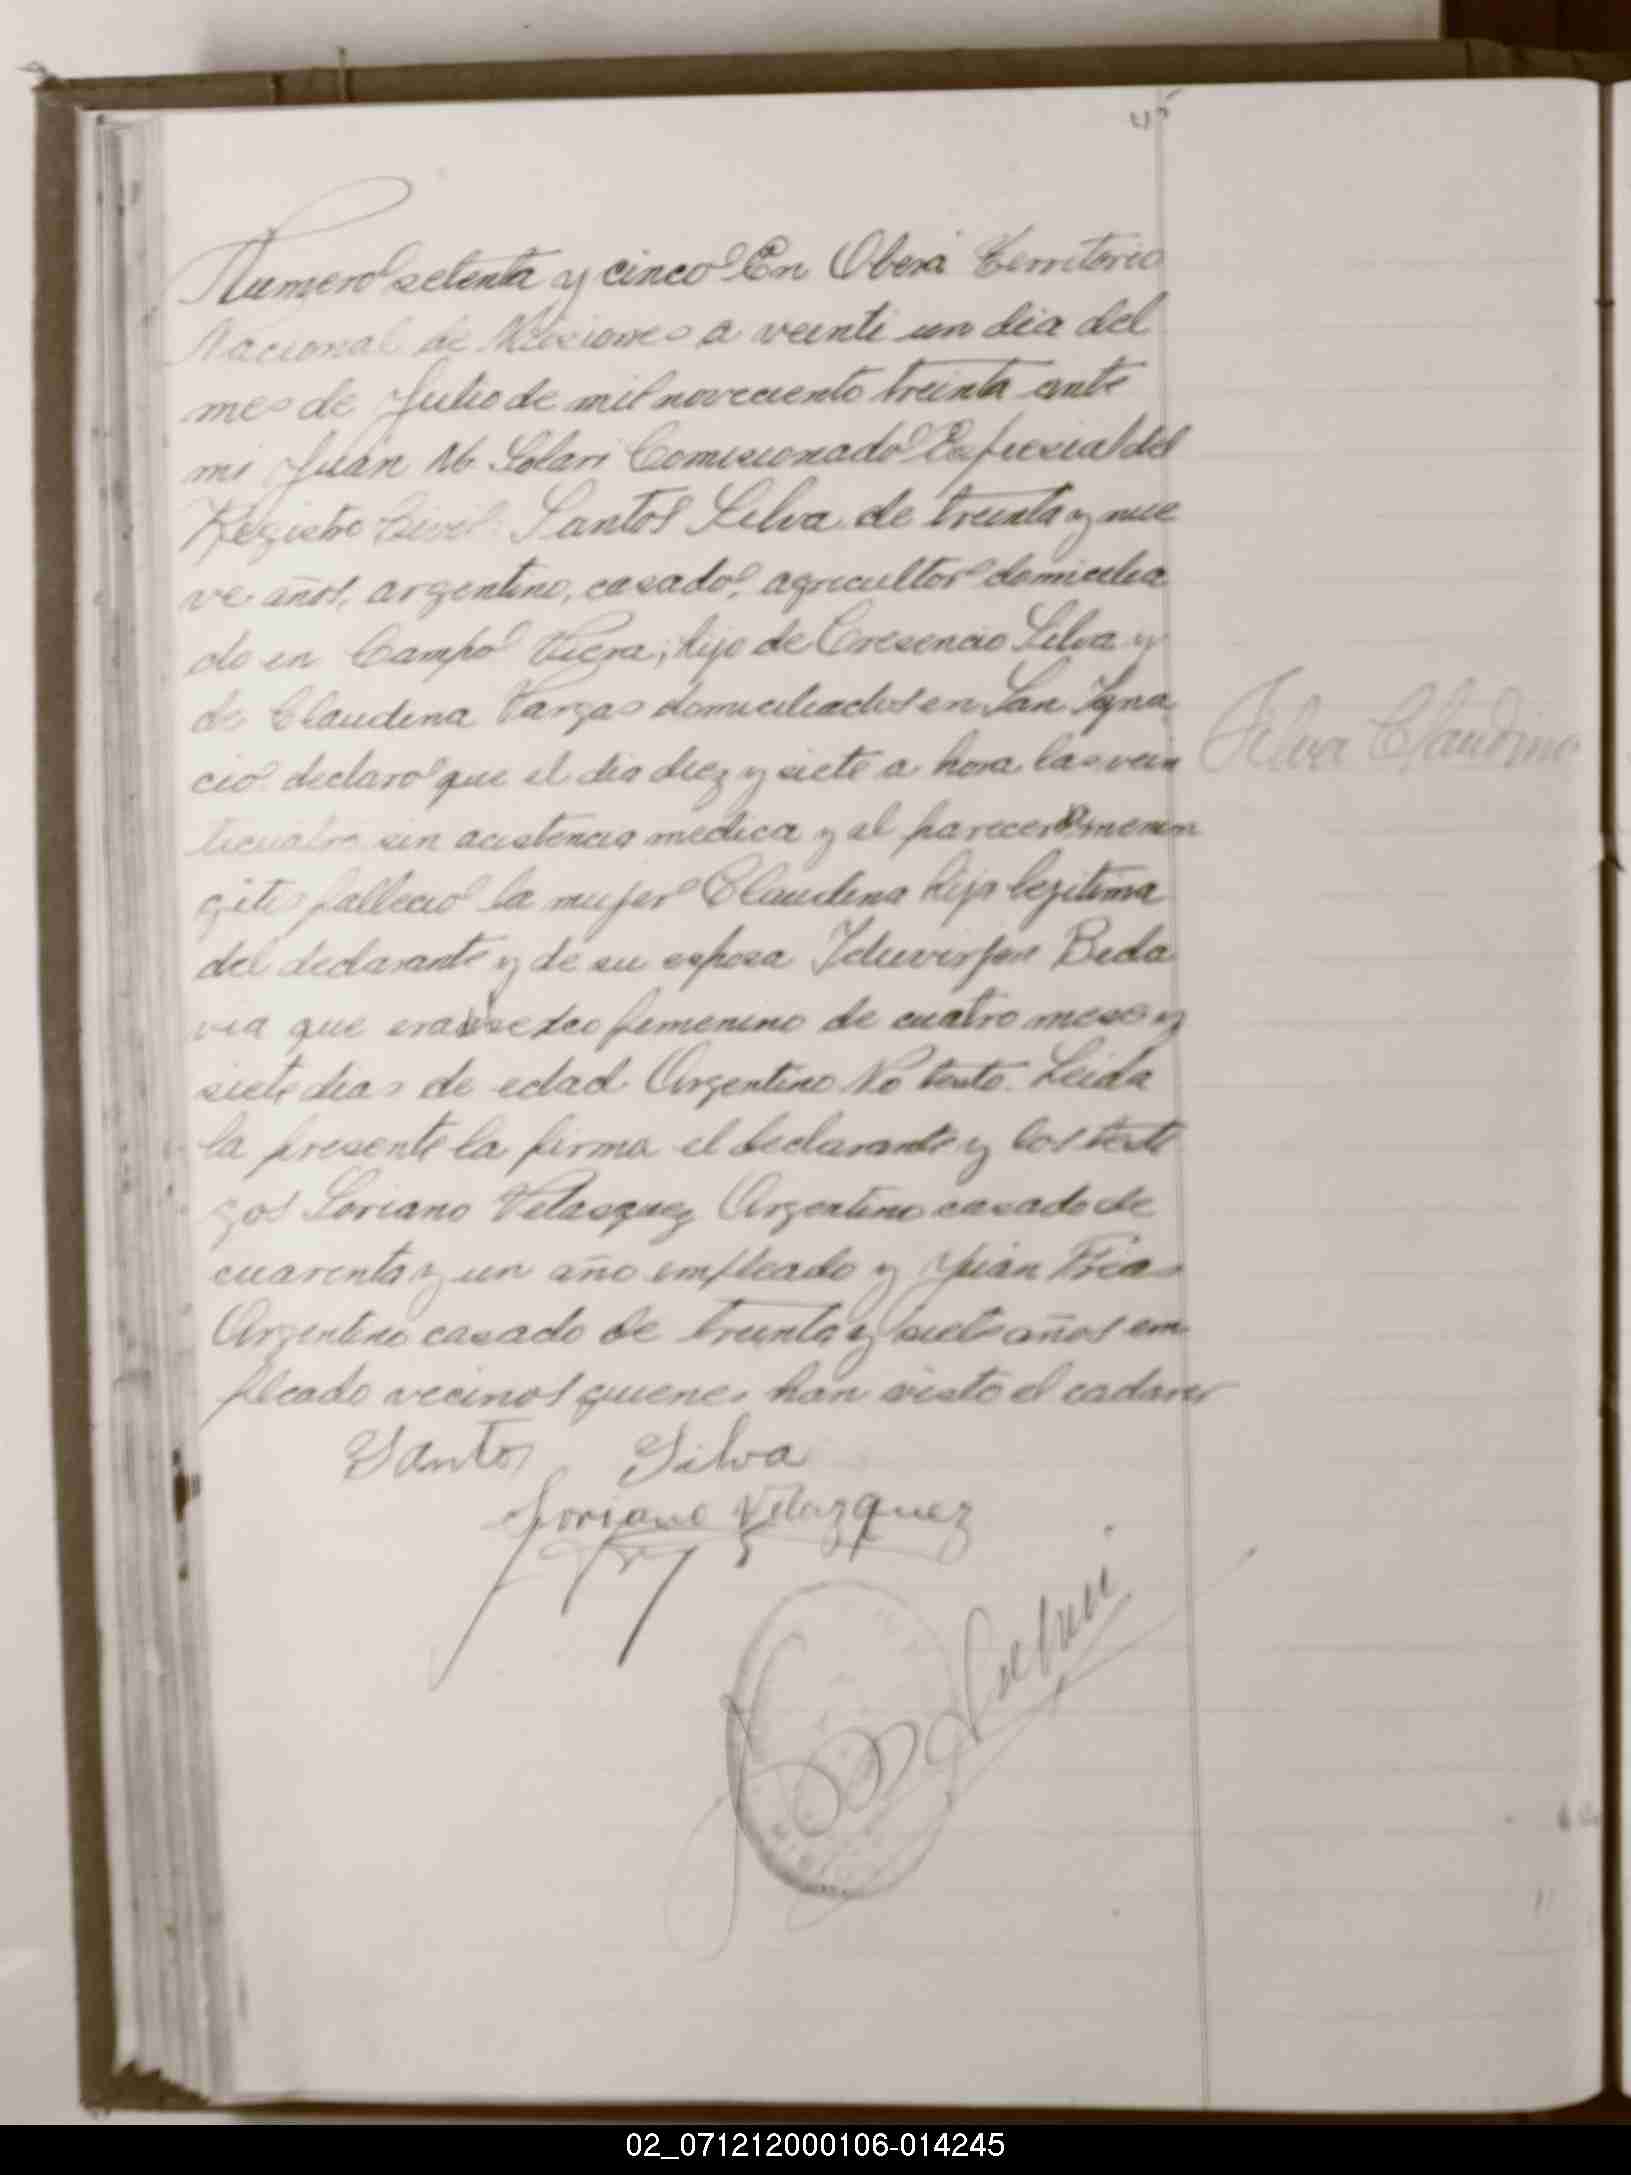 Numero setenta y cinco En Oberá Territorio
Nacional de Misiones a veinti un dia del
mes de Julio de mil noveciento treinta ante
mi Juan M. Solari Comisionado Espesial del
Registro Civil: Santos Silva de treinta y nue
ve años, argentino, casado, agricultor domicilia
do en Campo Viera; hijo de Cresencio Silva y
de Claudina Vargas domiciliados en San Igna
cio declaro que el dia diez y siete a hora las vein
ticuatro sin acistencia medica y al parecer menin
gitis fallecio la mujer Claudina hija legitima
del declarante y de su esposa Beda
via que era sexo femenino de cuatro mese y
siete dias de edad Argentino No testo. Leida
la presente la firma el declarante y los testi
gos Soriano Velasquez Argentino casado de
cuarenta y un año empleado y Juan Frias
Argentino casado de treinta y siete años em
pleado vecinos quienes han visto el cadaver
Silva Claudina
Santos Silva
Soriano Velazquez
02_071212000106-014245